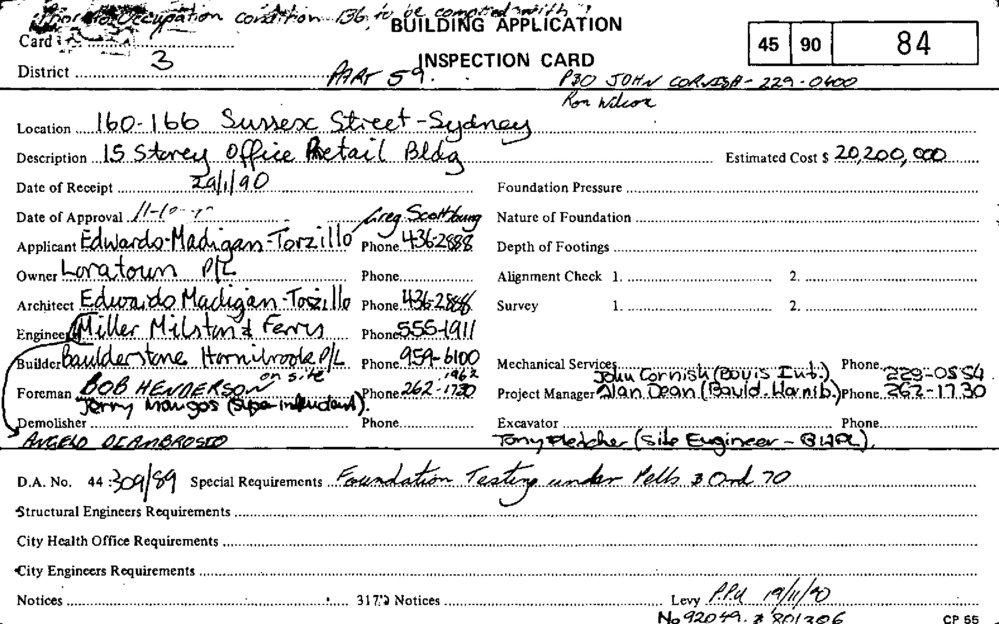 Prior to Occupation condition 136 to be complied with
BUILDING APPLICATION
Card
INSPECTION CARD
45 90 84
District 3
PART 59.
P30 JOHN CORNISH - 229-0400
Ron Wilcox
Location 160-166 Sussex Street - Sydney
Description 15 Storey Office Retail Bldg Estimated Cost $ 20,200,000
Date of Receipt 29/1/90 Foundation Pressure
Date of Approval Greg Scottburg Nature of Foundation
Applicant Edwards-Madigan-Torzillo Phone 436-2888 Depth of Footings
Owner Loratown P/L Phone Alignment Check 1. 2.
Architect Edwards Madigan-Torzillo Phone 436-2888 Survey 1. 2.
Engineer Miller Milston & Ferris Phone 555-1911
Builder Baulderstone Hornibrook P/L Phone 959-6100 Mechanical Services Phone 229-0554
on site 1962 John Cornish (Bovis Int.)
Foreman BOB HENDERSON Phone 262-1730 Project Manager Alan Dean (Bauld. Hornib.) Phone 262-1730
Jerry Mangos (Superintendant).
Demolisher Phone Excavator Phone
ANGELO DEAMBROSIO Tony Fletcher (Site Engineer - BHPL).
D.A. No. 44 309/89 Special Requirements Foundation Testing under Pells & Ord 70
Structural Engineers Requirements
City Health Office Requirements
City Engineers Requirements
Notices 317 Notices Levy P.P.U 19/11/90
No 92049. $ 801306
CP 55